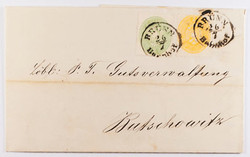 BRÜNN
26
7
BAHNHOF
BRÜNN
26
7
BAHNHOF
Löbl: P. T. Gutsverwaltung
Kutschowitz